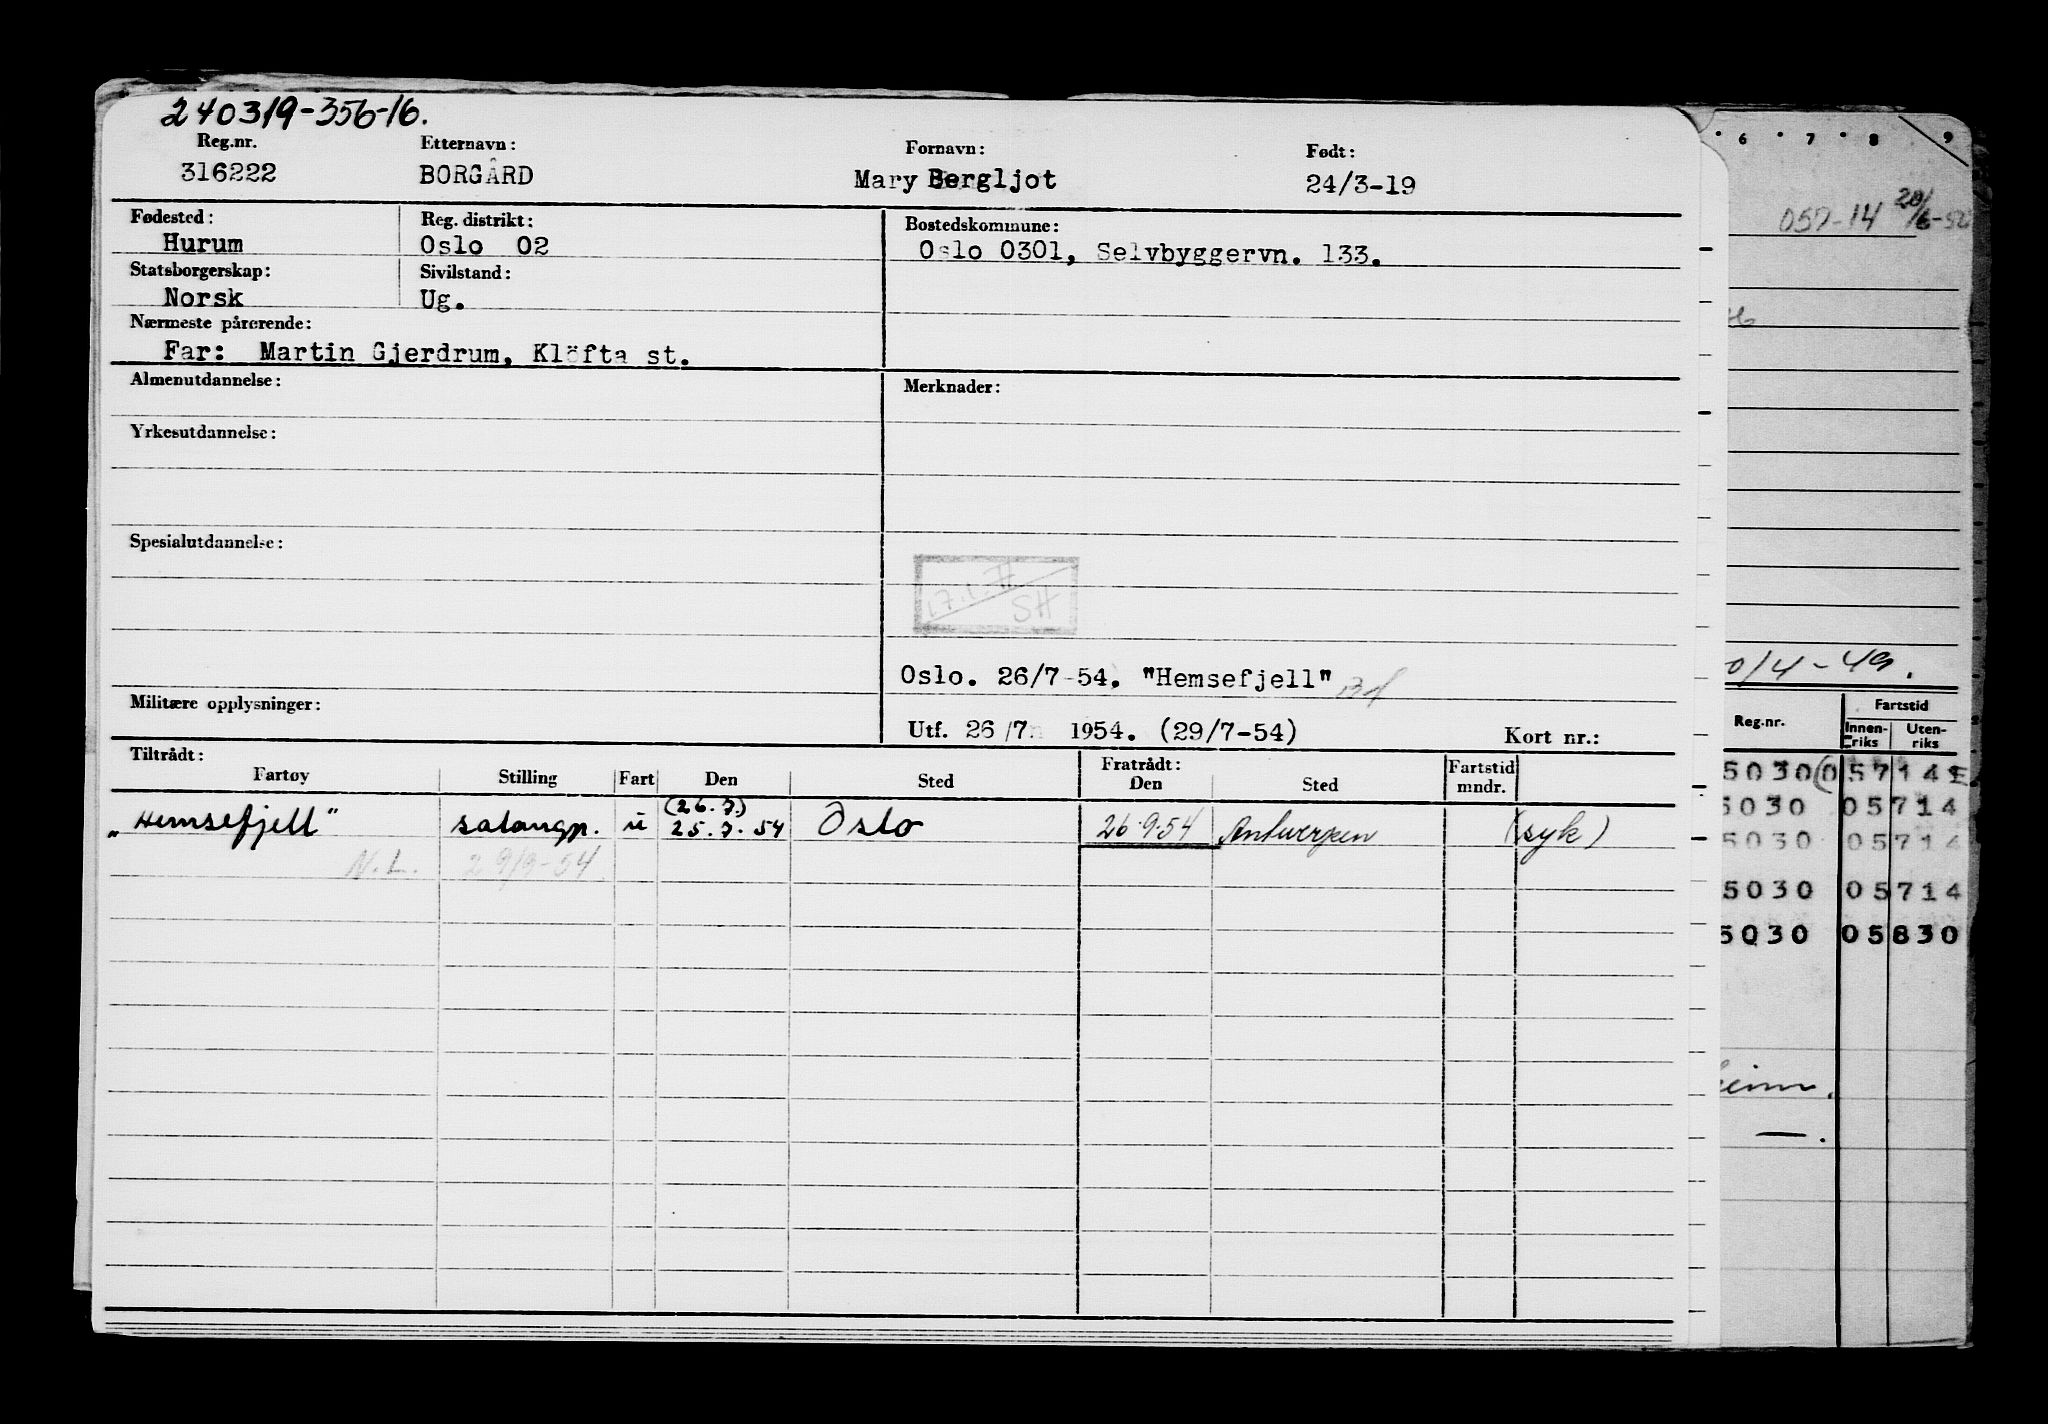 240319-356-16.
Reg.nr. Etternavn: Fornavn: Født:
316222 BORGÅRD Mary Bergljot 24/3-19
Fødested: Reg. distrikt: Bostedskommune:
Hurum Oslo 02 Oslo 0301, Selvbyggervn. 133.
Statsborgerskap: Sivilstand:
Norsk Ug.
Nærmeste pårørende:
Far: Martin Gjerdrum, Klöfta st.
Almenutdannelse: Merknader:
Yrkesutdannelse:
Spesialutdannelse:
SH
Oslo. 26/7-54. "Hemsefjell"
Militære opplysninger:
Utf. 26/7 1954. (29/7-54) Kort nr.:
Tiltrådt: Fratrådt: Fartstid
Fartøy Stilling Fart Den Sted Den Sted mndr.
(26.7.)
"Hemsefjell" salongp. u 25.7.54 Oslo 26.9.54 Antwerpen (syk)
N.L. 29/9-54
6 7 8 9
057-14 20/6-52
0/4-49.
Reg.nr. Fartstid
Innen-riks Uten-riks
5030 (05714E
5030 05714
5030 05714
5030 05714
5030 05830